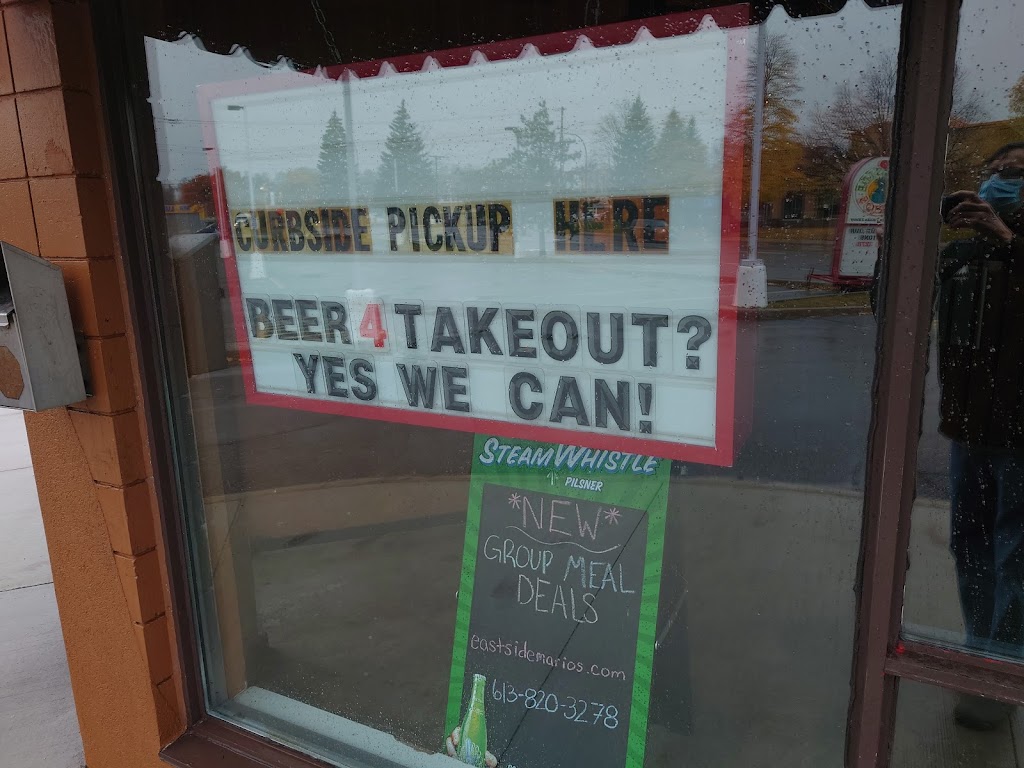 CURBSIDE PICKUP HERE
BEER 4 TAKEOUT?
YES WE CAN!
STEAM WHISTLE
PILSNER
*NEW*
GROUP MEAL
DEALS
eastsidemarios.com
613-820-3278